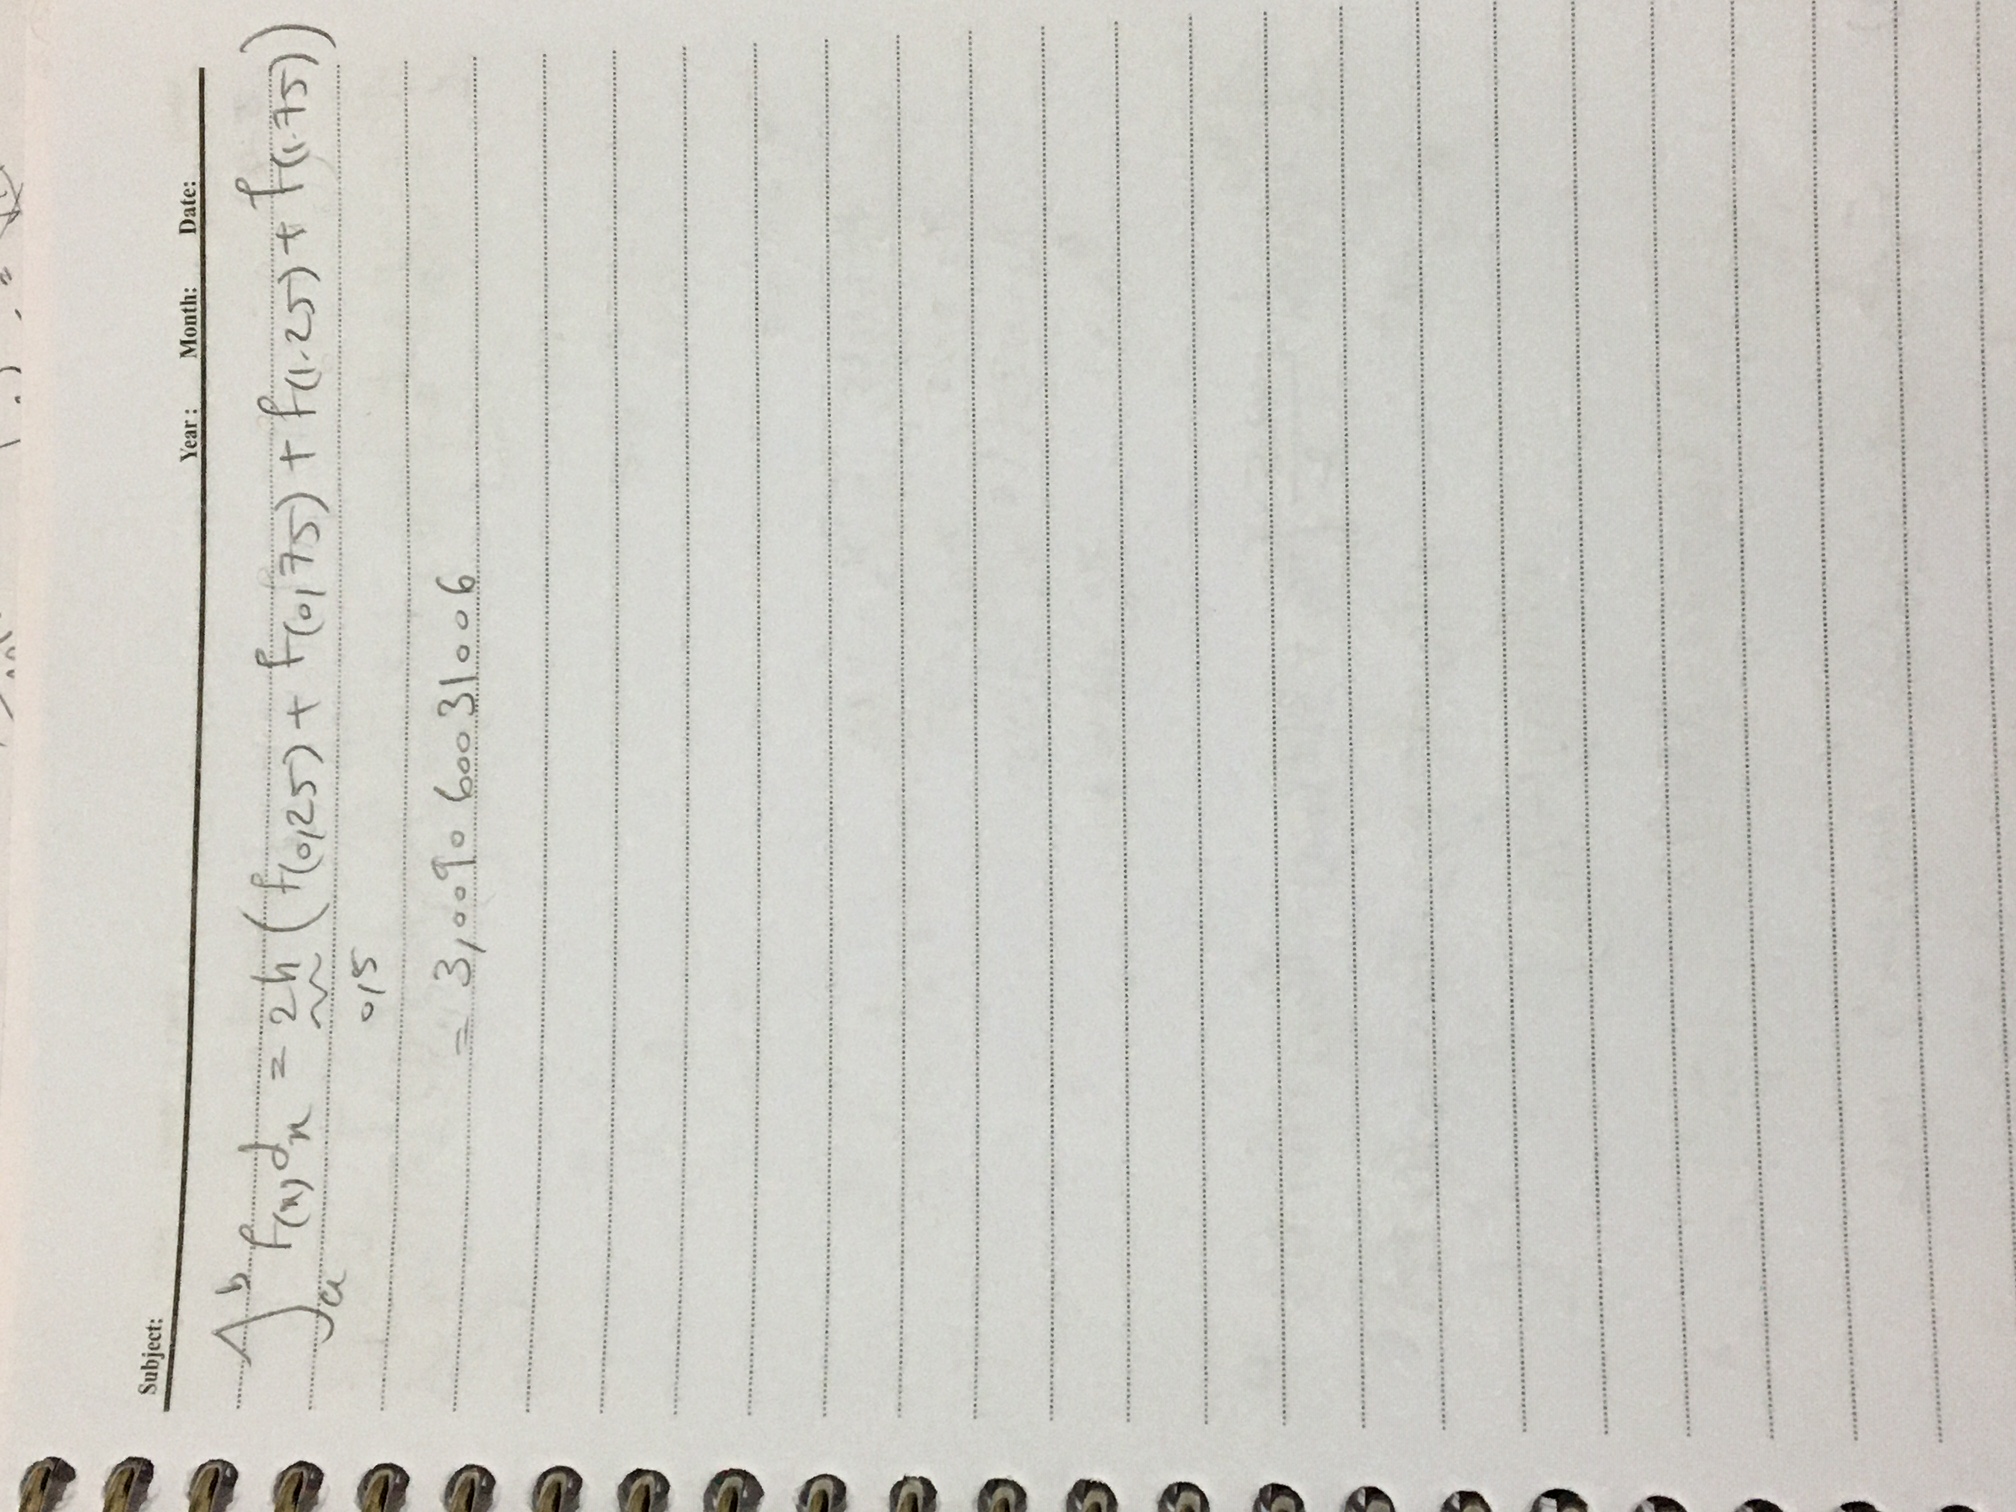 Subject:
Year : Month: Date:
∫ₐᵇ f(x) dx = 2h (f(0,25) + f(0,75) + f(1.25) + f(1.75))
0,5
= 3,009060031006